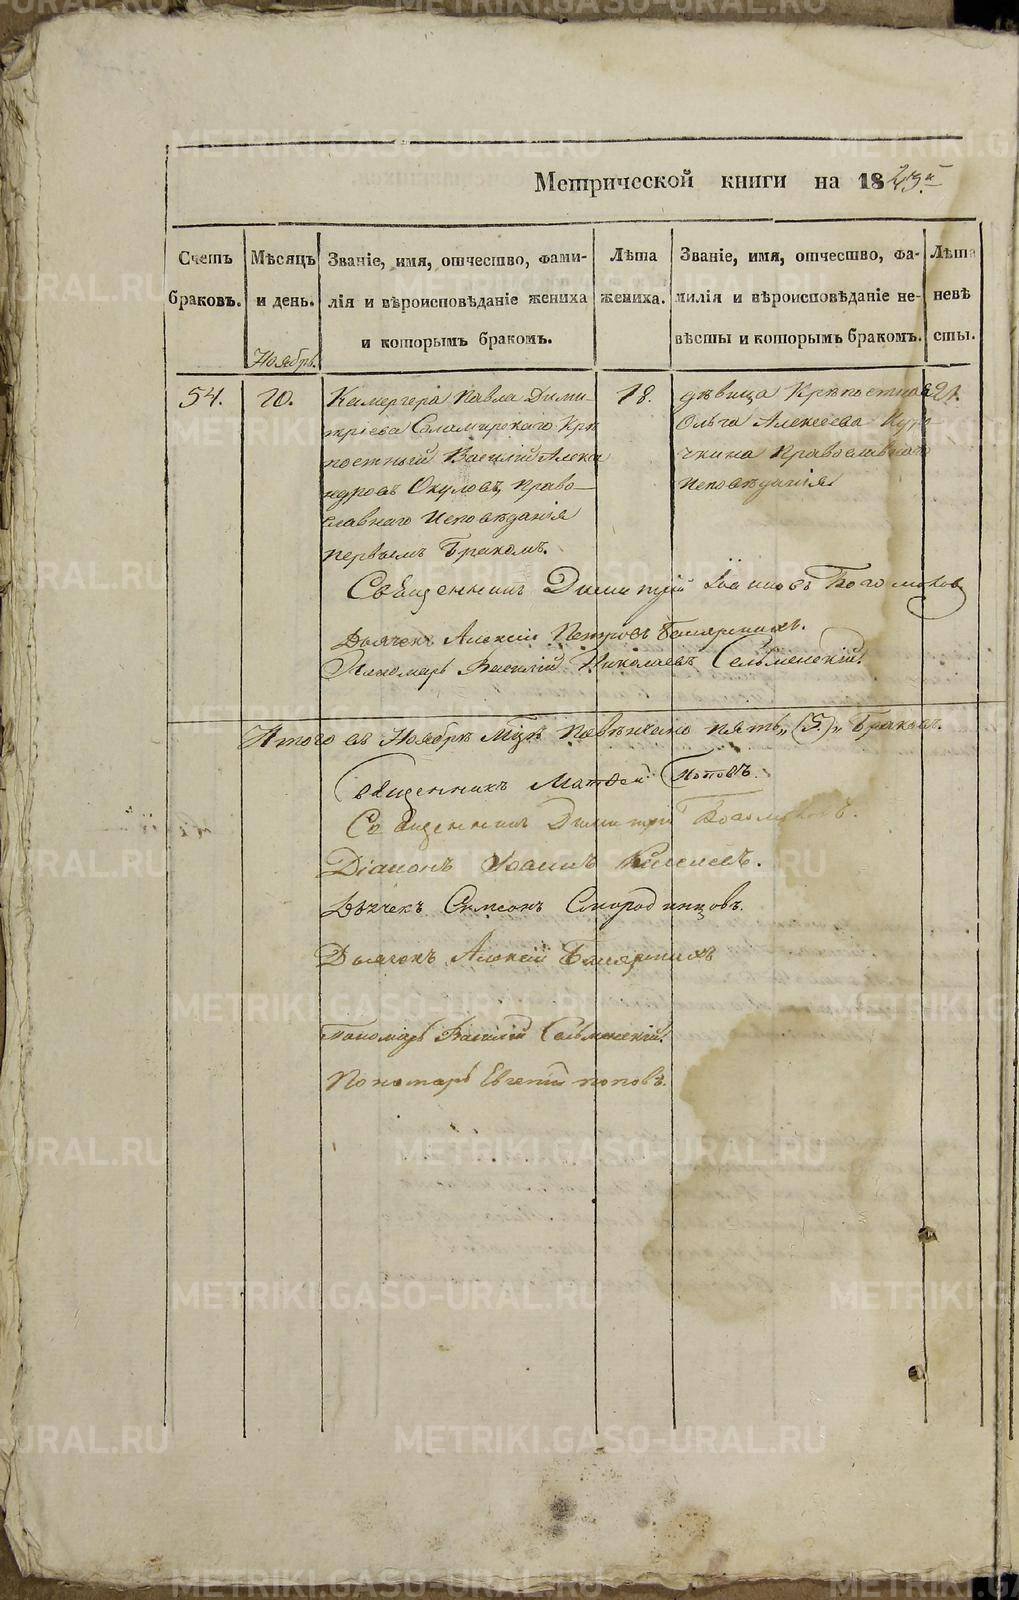 Метрической книги на 18
Счетъ браковъ.
Мѣсяцъ и день.
Званіе, имя, отчество, фами-
лія и вѣроисповѣданіе жениха
и которымъ бракомъ.
Лѣта жениха.
Званіе, имя, отчество, фа-
милія и вѣроисповѣданіе не-
вѣсты и которымъ бракомъ.
Лѣта невѣ
сты.
Ноябрь.
54.
Камергера Павла Дими-
тріева Соламирскаго Крѣ
постный Василій Алекса
ндровъ Окуловъ, право-
славнаго Исповѣданія
первымъ Бракомъ.
18.
дѣвица Крѣпостная
Ольга Алексеева Куро
чкина Православнаго
Исповѣданія
21.
Священникъ Димитрій Іоанновъ Богомолов
Дьячекъ Алексій Петровъ
Пономарь Василій Николаевъ Сельменскій.
Итого въ Ноябрѣ Мцѣ Повѣнчано пять „(5.)„ Браковъ.
Священникъ Матѳей Поповъ.
Священникъ Димитрій Богомоловъ.
Діаконъ Іоаннъ Киселевъ.
Дьячекъ Симеонъ Смородинцовъ.
Дьячекъ Алексій
Пономарь Василій Сельменскій.
Пономарь Евгеній поповъ.
METRIKI.GASO-URAL.RU